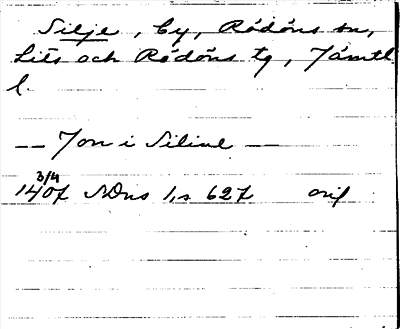 Silje, by, Rödöns sn,
Lits och Rödöns tg, Jämtl
l.
— Jon i Siliue —
3/4
1407 SDns 1, s 627 orig